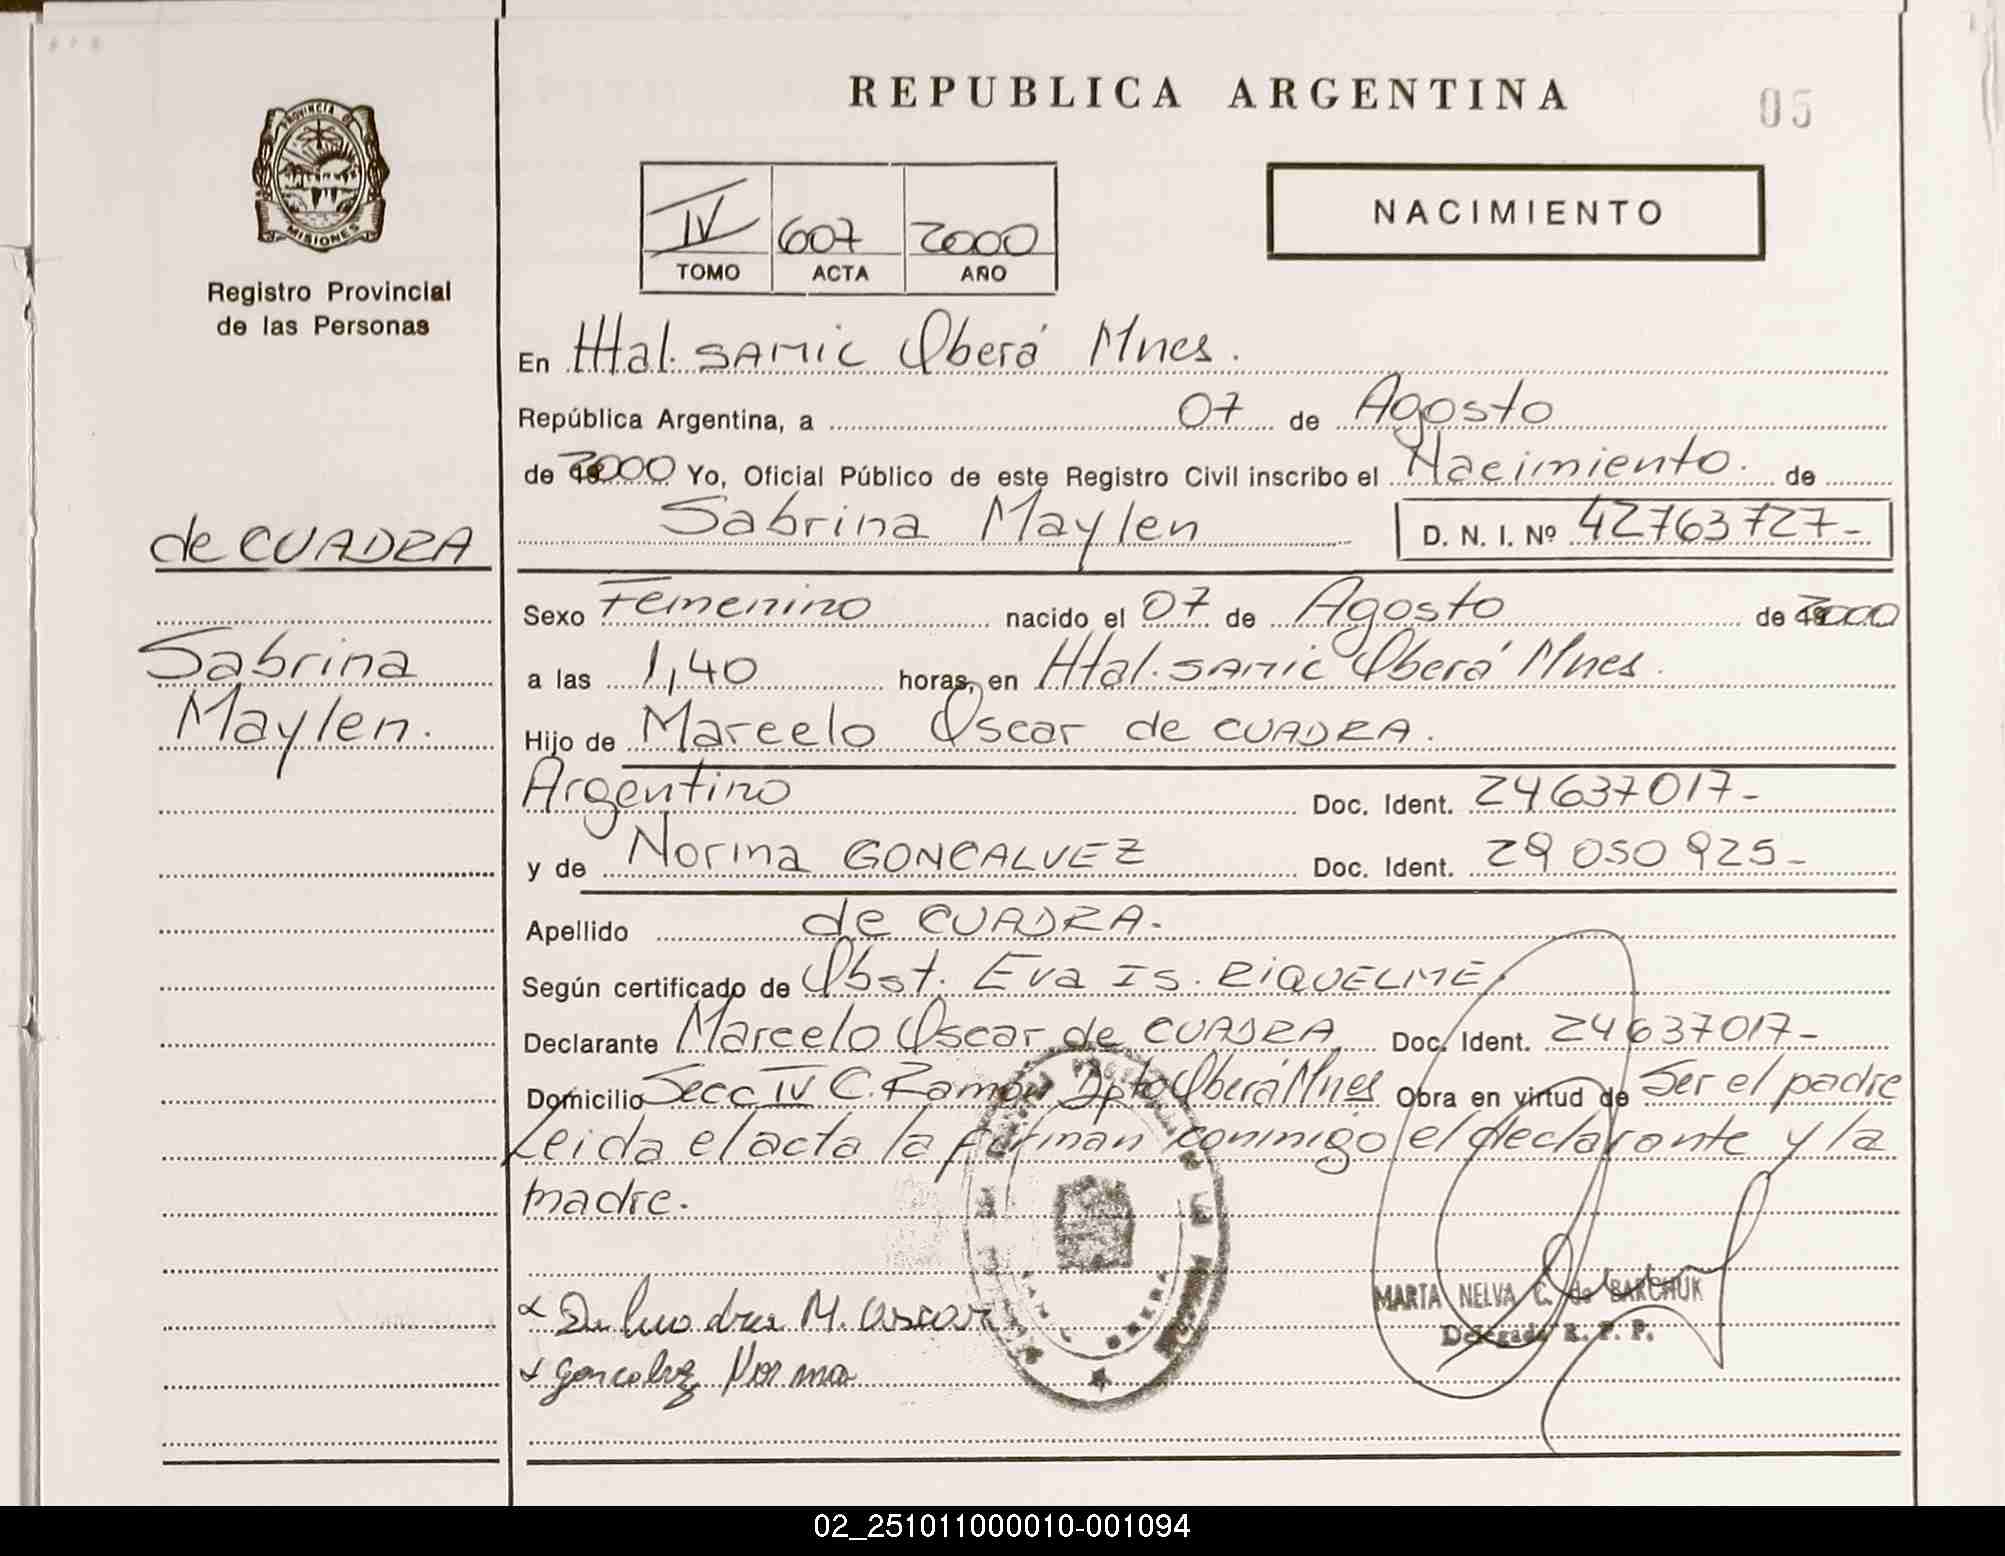 REPUBLICA ARGENTINA
05
PROVINCIA DE
MISIONES
Registro Provincial
de las Personas
IV 607 2000
TOMO ACTA AÑO
NACIMIENTO
En Htal. SAMIC Oberá Mnes.
República Argentina, a 07 de Agosto
de 2000 Yo, Oficial Público de este Registro Civil inscribo el Nacimiento. de
Sabrina Maylen D. N. I. Nº 42763727-
de CUADRA
Sabrina
Maylen.
Sexo Femenino nacido el 07 de Agosto de 2000
a las 1,40 horas, en Htal. SAMIC Oberá Mnes.
Hijo de Marcelo Oscar de CUADRA.
Argentino Doc. Ident. 24637017-
y de Norma GONCALVEZ Doc. Ident. 29050925-
Apellido de CUADRA.
Según certificado de Obst. Eva IS. RIQUELME
Declarante Marcelo Oscar de CUADRA Doc. Ident. 24637017-
Domicilio Secc IV C. Ramón Dpto Oberá Mnes Obra en virtud de Ser el padre
Leida el acta la firman conmigo el declarante y la
madre.
M. Oscar
Goncalvez Norma
OBERA
MARTA NELVA C. de BARCHUK
Delegada R. P. P.
02_251011000010-001094